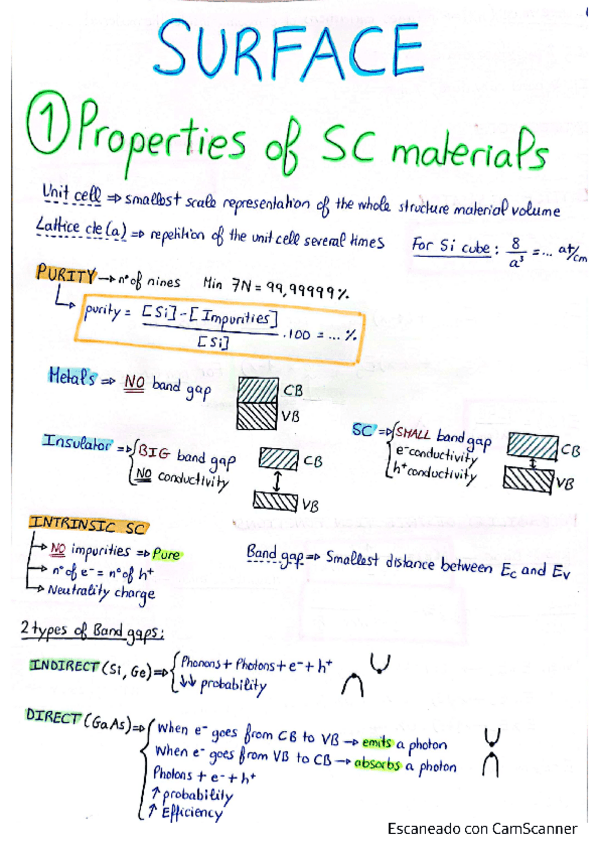 SURFACE
① Properties of SC materials
Unit cell ⇒ smallest scale representation of the whole structure material volume
Lattice cte (a) ⇒ repetition of the unit cell several times
For Si cube : 8/a³ = ... at/cm
PURITY → nº of nines Min 7N = 99,99999%
↳ purity = [Si]-[Impurities]/[Si] .100 = ... %
Metals ⇒ NO band gap
CB
VB
Insulator ⇒ { BIG band gap
NO conductivity
CB
VB
SC ⇒ { SMALL band gap
e⁻ conductivity
h⁺ conductivity
CB
VB
INTRINSIC SC
→ NO impurities ⇒ Pure
→ nº of e⁻ = nº of h⁺
→ Neutrality charge
Band gap ⇒ Smallest distance between Ec and Ev
2 types of Band gaps:
INDIRECT (Si, Ge) ⇒ { Phonons + Photons + e⁻ + h⁺
↓↓ probability
DIRECT (GaAs) ⇒ { When e⁻ goes from CB to VB → emits a photon
When e⁻ goes from VB to CB → absorbs a photon
Photons + e⁻ + h⁺
↑ probability
↑ Efficiency
Escaneado con CamScanner